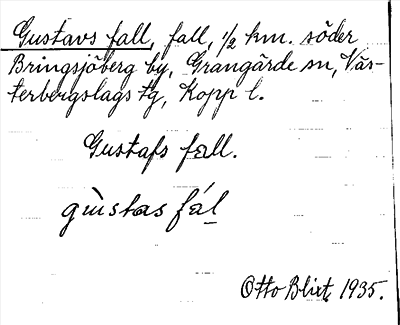 Gustavs fall, fall, 1/2 km. söder
Bringsjöberg by, Grangärde sn, Väs-
terbergslags tg, Kopp l.
Gustafs fall.
gùstas fál
Otto Blixt, 1935.